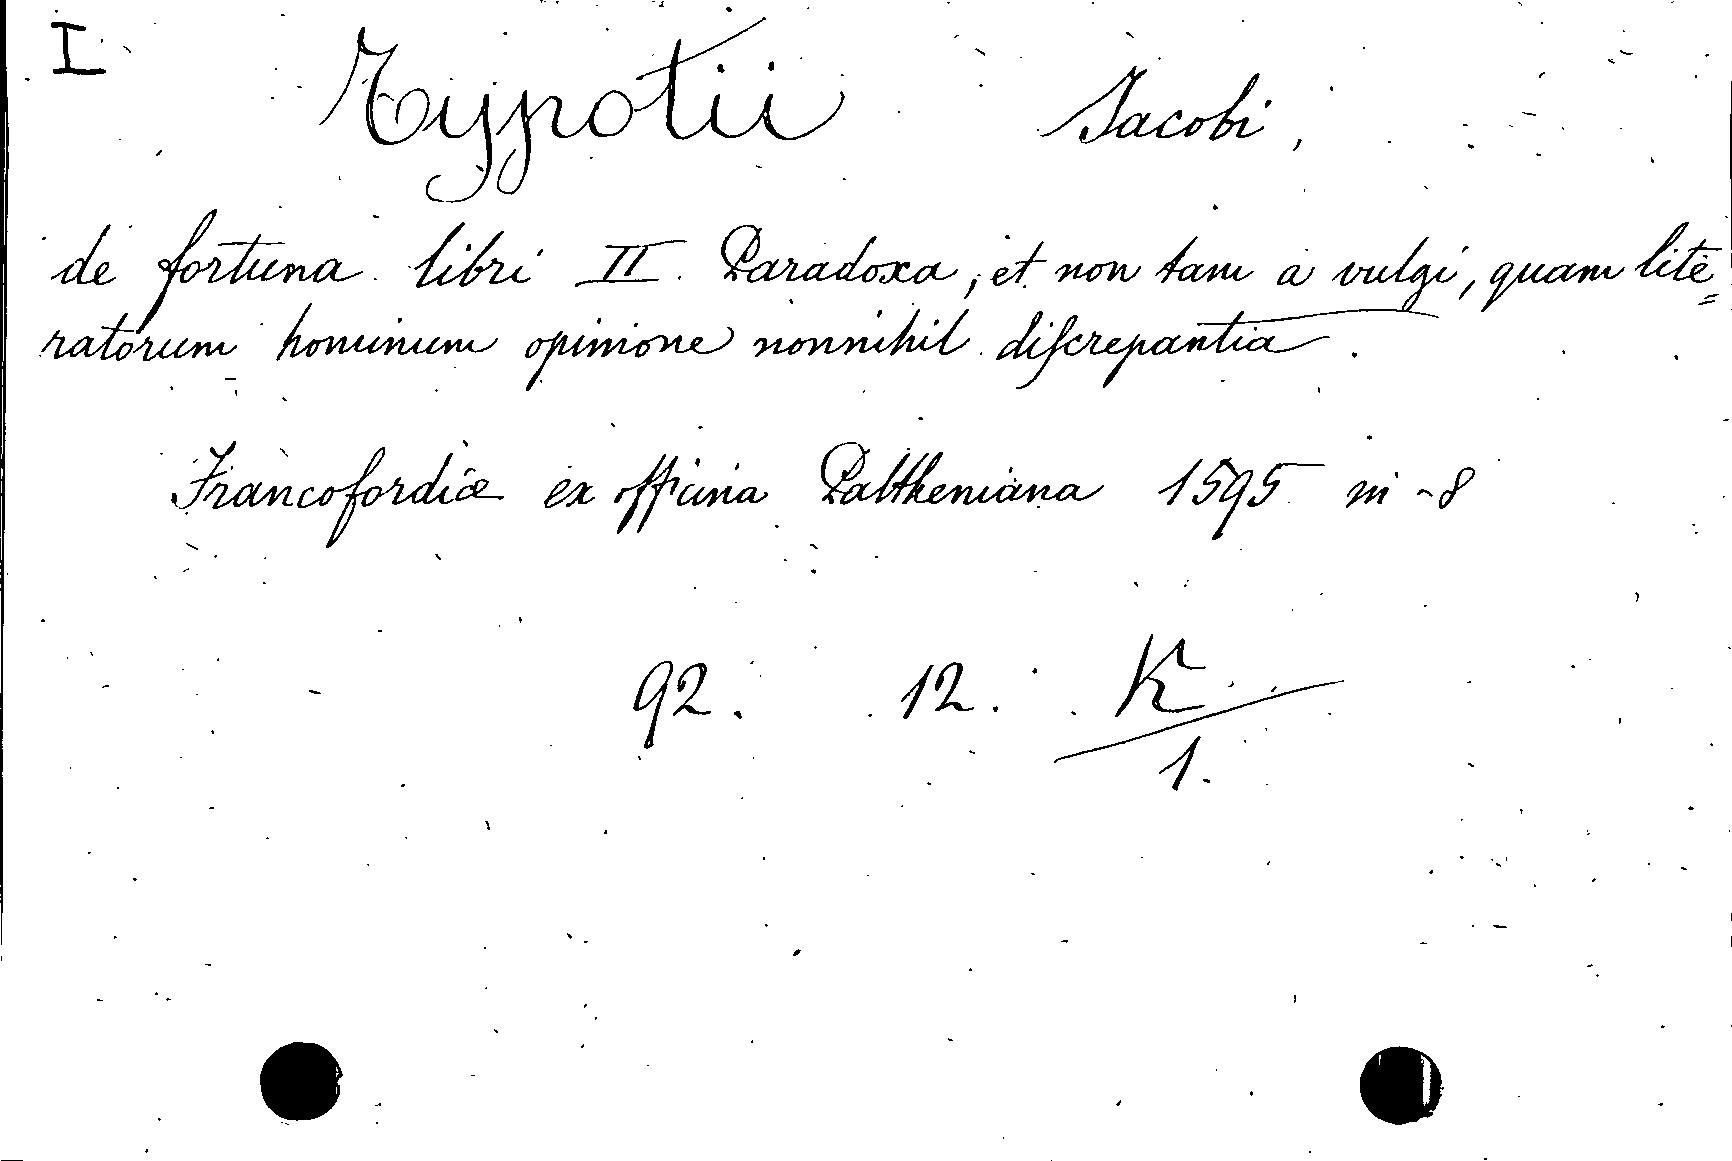 I
Typotii Jacobi,
de fortuna libri II. Paradoxa, et non tam a vulgi, quam lite=
ratorum hominum opinione nonnihil discrepantia.
Francofordiæ ex officina Paltheniana 1595 in-8
92. 12. K
1.